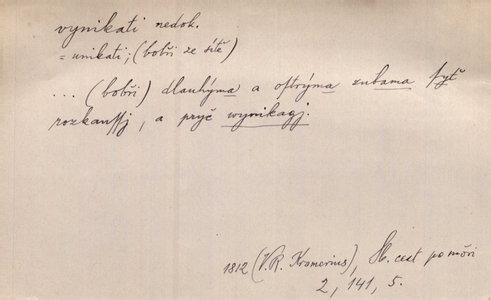 vynikati nedok.
= unikati; (bobři ze sítě)
... (bobři) dlauhýma a oſtrýma zubama ſytě
rozkauſſj, a pryč wynikagj.
1812 (V. R. Kramerius), Sb. cest po moři
2, 141, 5.